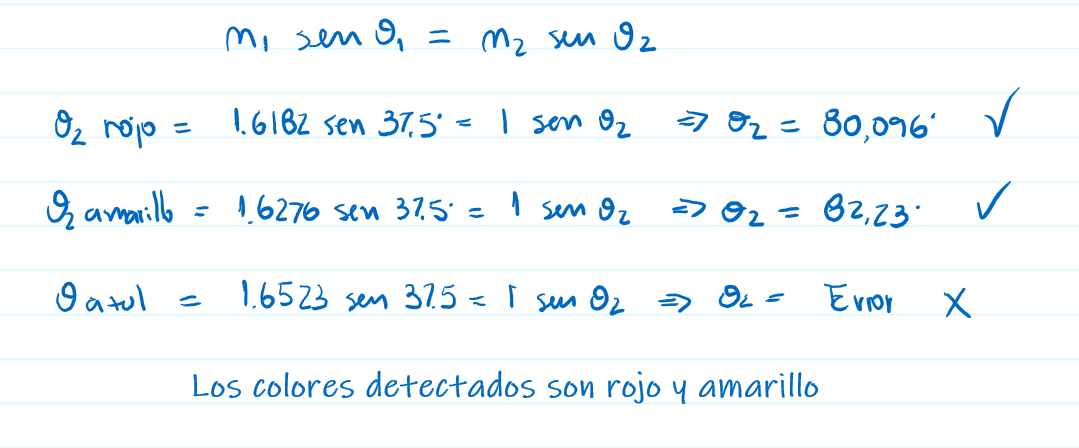 n₁ sen θ₁ = n₂ sen θ₂
θ₂ rojo = 1.6182 sen 37.5° = 1 sen θ₂ => θ₂ = 80,096° ✓
θ₂ amarillo = 1.6276 sen 37.5° = 1 sen θ₂ => θ₂ = 82,23° ✓
θ azul = 1.6523 sen 37.5 = 1 sen θ₂ => θ₂ = Error X
Los colores detectados son rojo y amarillo